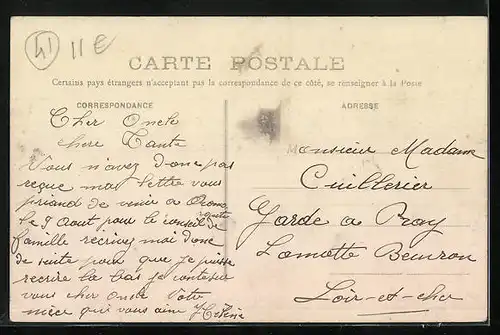 41 11 €
CARTE POSTALE
Certains pays étrangers n'acceptant pas la correspondance de ce côté, se renseigner à la Poste
CORRESPONDANCE
Cher Oncle
chere Tante
Vous n'avez donc pas
reçue mai lettre vous
priand de venir a
le 9 Aout pour le conseil de
famille recrivez moi donc
de suite pour que je puisse
recrire la bas je
vous cher Oncle Votre
niece qui vous aime
ADRESSE
Monsieur Madame
Cuillerier
Garde a Bray
Lamotte Beuvron
Loir-et-cher